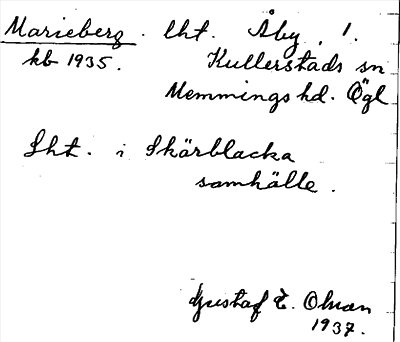 Marieberg. lht. Åby, 1.
kb 1935. Kullerstads sn
Memmings hd. Ögl
Lht. i Skärblacka
samhälle.
Gustaf E. Oman
1937.